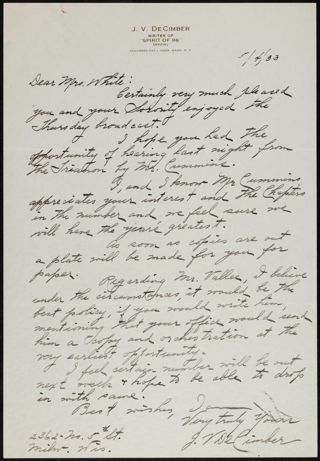 J. V. DeCIMBER
WRITER OF
"SPIRIT OF 98"
1/4/33
Dear Mrs. White:
Certainly very much pleased
you and your Sorority enjoyed the
Thursday broadcast.
I hope you had the
opportunity of hearing last night from
the by Mr. Cummins.
I, and I know Mr Cummins
appreciates your interest and the Chapters
in the number and we feel sure we
will have the years greatest.
As soon as copies are out
a plate will be made for you for
paper.
Regarding Mr. Vallee, I believe
under the circumstances, it would be the
best policy, if you would write him,
mentioning that your office would send
him a copy and orchestration at the
very earliest opportunity.
I feel certain number will be out
next week & hope to be able to drop
in with same.
Best wishes, I am
Very truly Yours
J. V. DeCimber
2362-No. 5th St.
Milw. Wis.